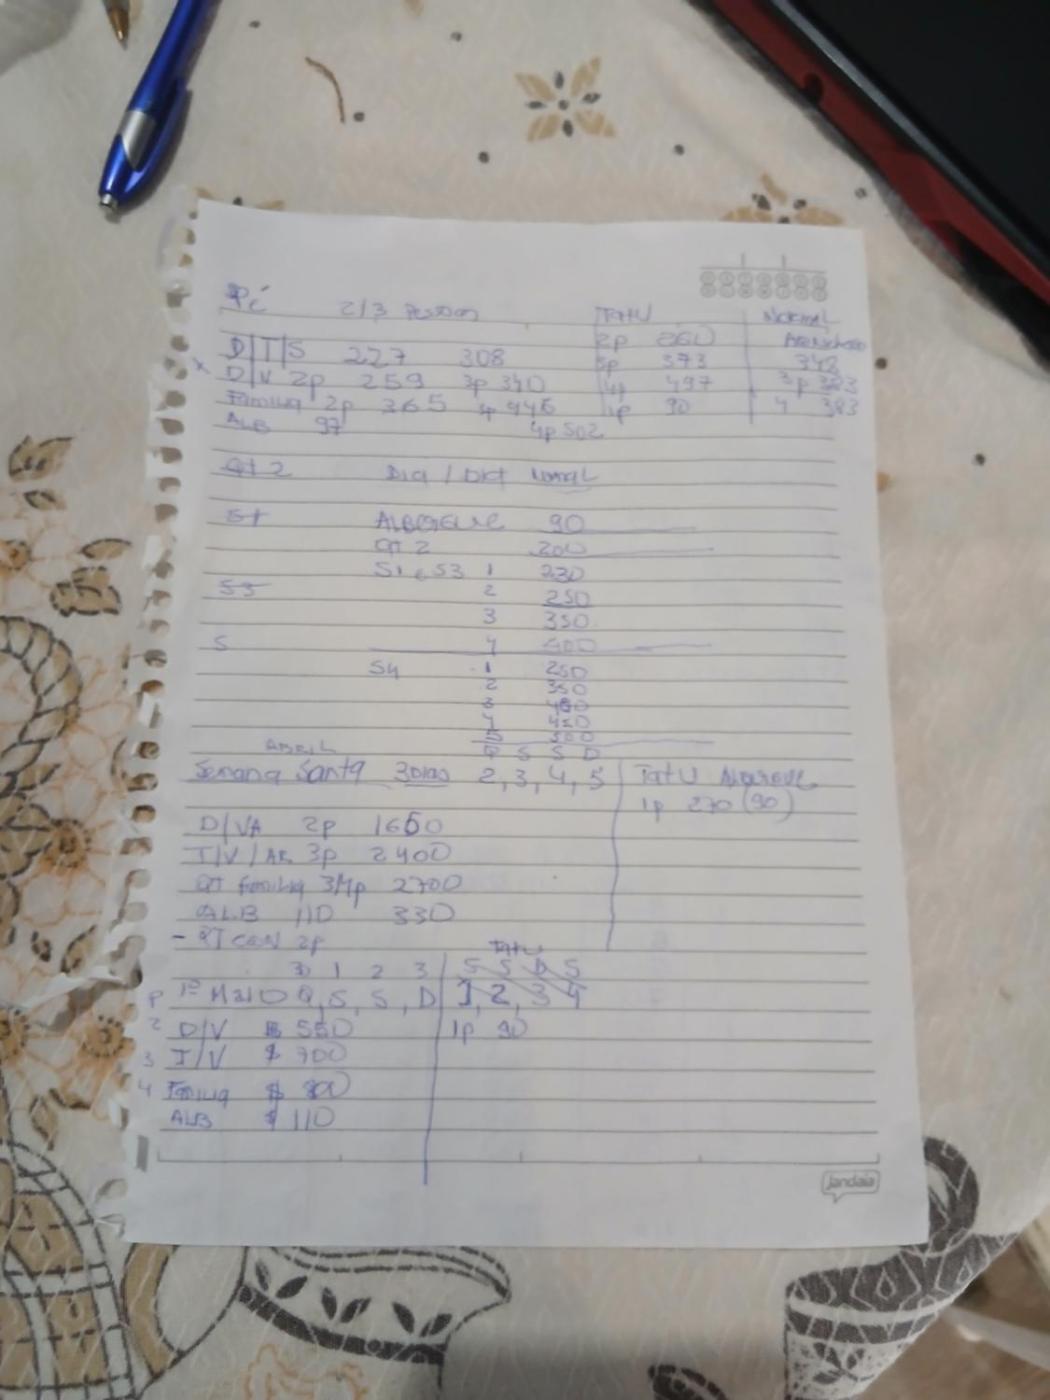 Pé 2/3 Pessoas TATU NORMAL
2p 260
D|T|S 227 308 3p 373 348
x D|V 2p 259 3p 340 4p 497 3p
Familia 2p 365 4p 446 1p 90 4 383
ALB 97 4p 502
QT 2 Dia / Dia Normal
S1 ALBERGUE 90
QT 2 200
S1 e S3 1 230
S3 2 250
3 350
S 4 400
S4 1 250
2 350
3
4 450
5 500
ABRIL Q S S D
Semana Santa 3 Dias 2, 3, 4, 5 TATU Albergue
1p 270 (90)
D/VA 2p 1650
T/V/AR 3p 2400
QT familia 3/4p 2700
ALB 110 330
- QT CASAL 2p
TATU
30 1 2 3 S S D S
P 1º Maio Q, S, S, D 1, 2, 3 4
2 D/V $ 550 1p 90
3 T/V $ 700
4 Familia $ 800
ALB $ 110
jandaia